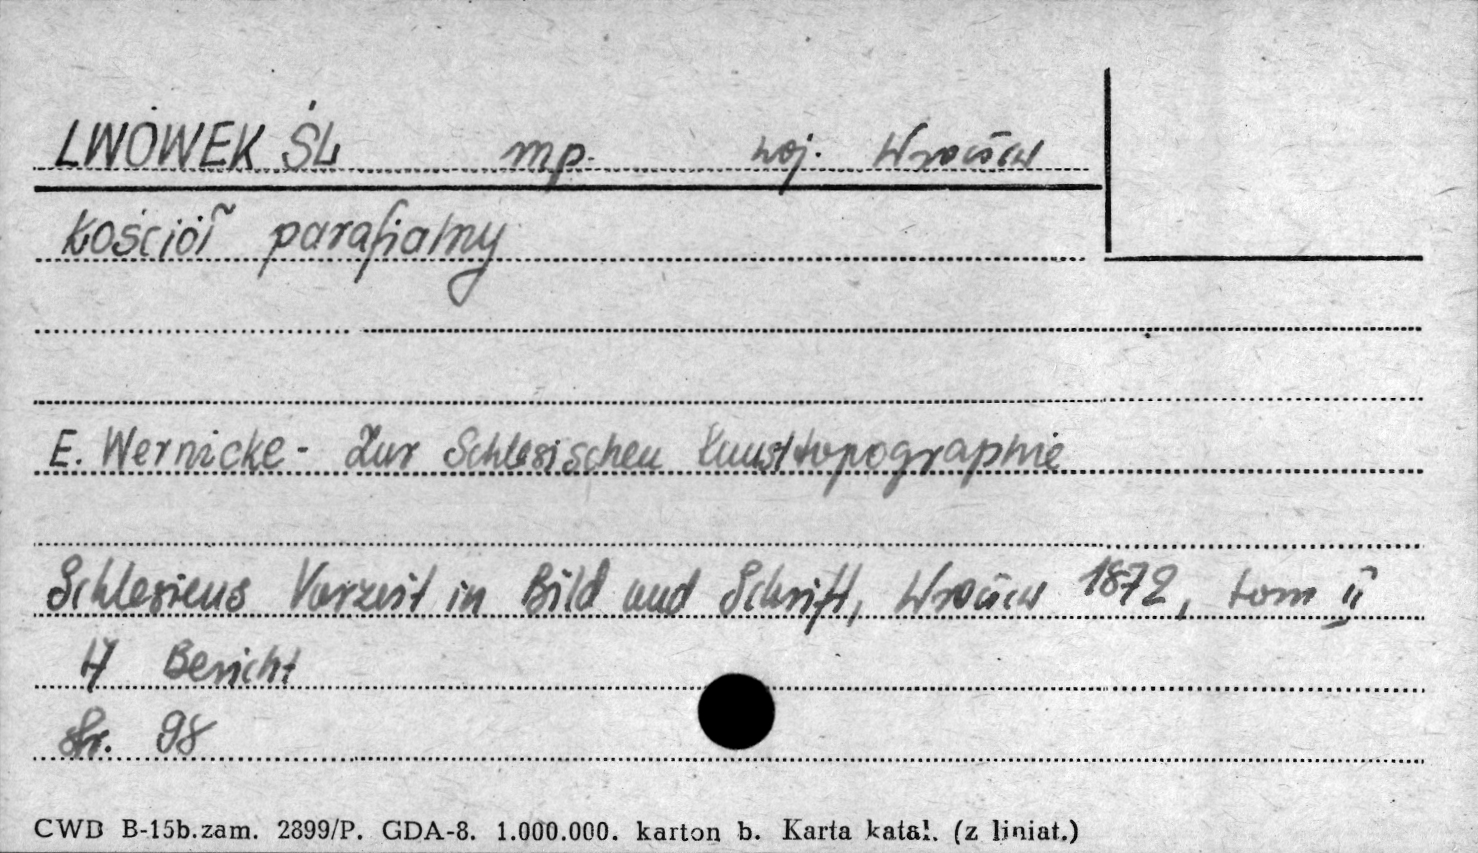 LWÓWEK ŚL mp. woj. Wrocław
kościół parafialny
E. Wernicke - Zur Schlesischen Kunsttopographie
Schlesiens Vorzeit in Bild und Schrift, Wrocław 1872, tom II
17 Bericht
str. 98
CWD B-15b.zam. 2899/P. GDA-8. 1.000.000. karton b. Karta katal. (z liniat.)